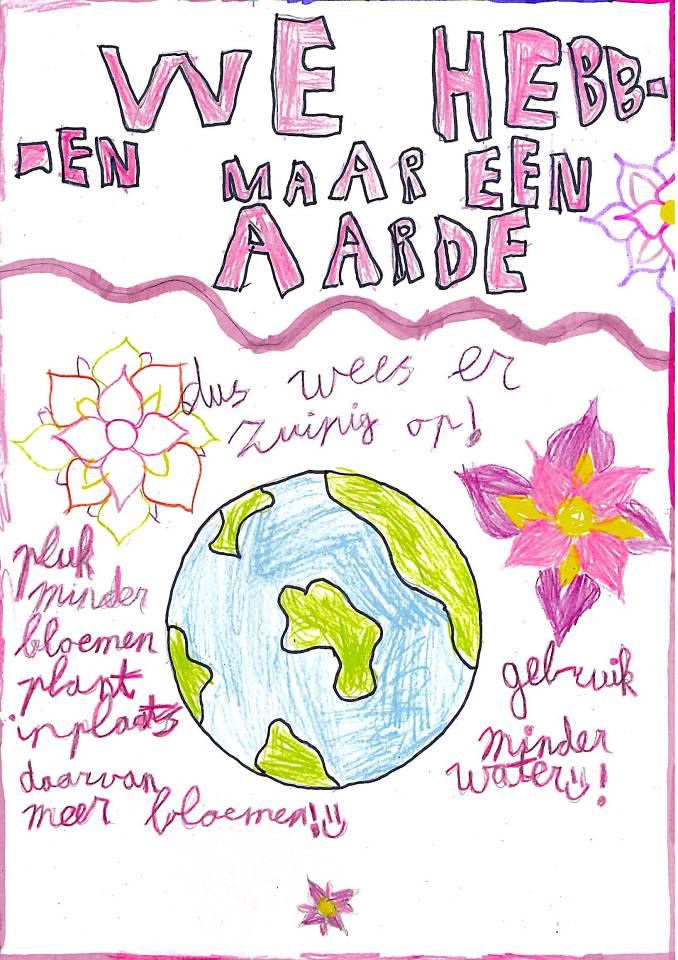 WE HEBB-
-EN MAAR EEN
AARDE
dus wees er
zuinig op!
pluk
minder
bloemen
plant
inplaats
daarvan
meer bloemen!
gebruik
minder
water!